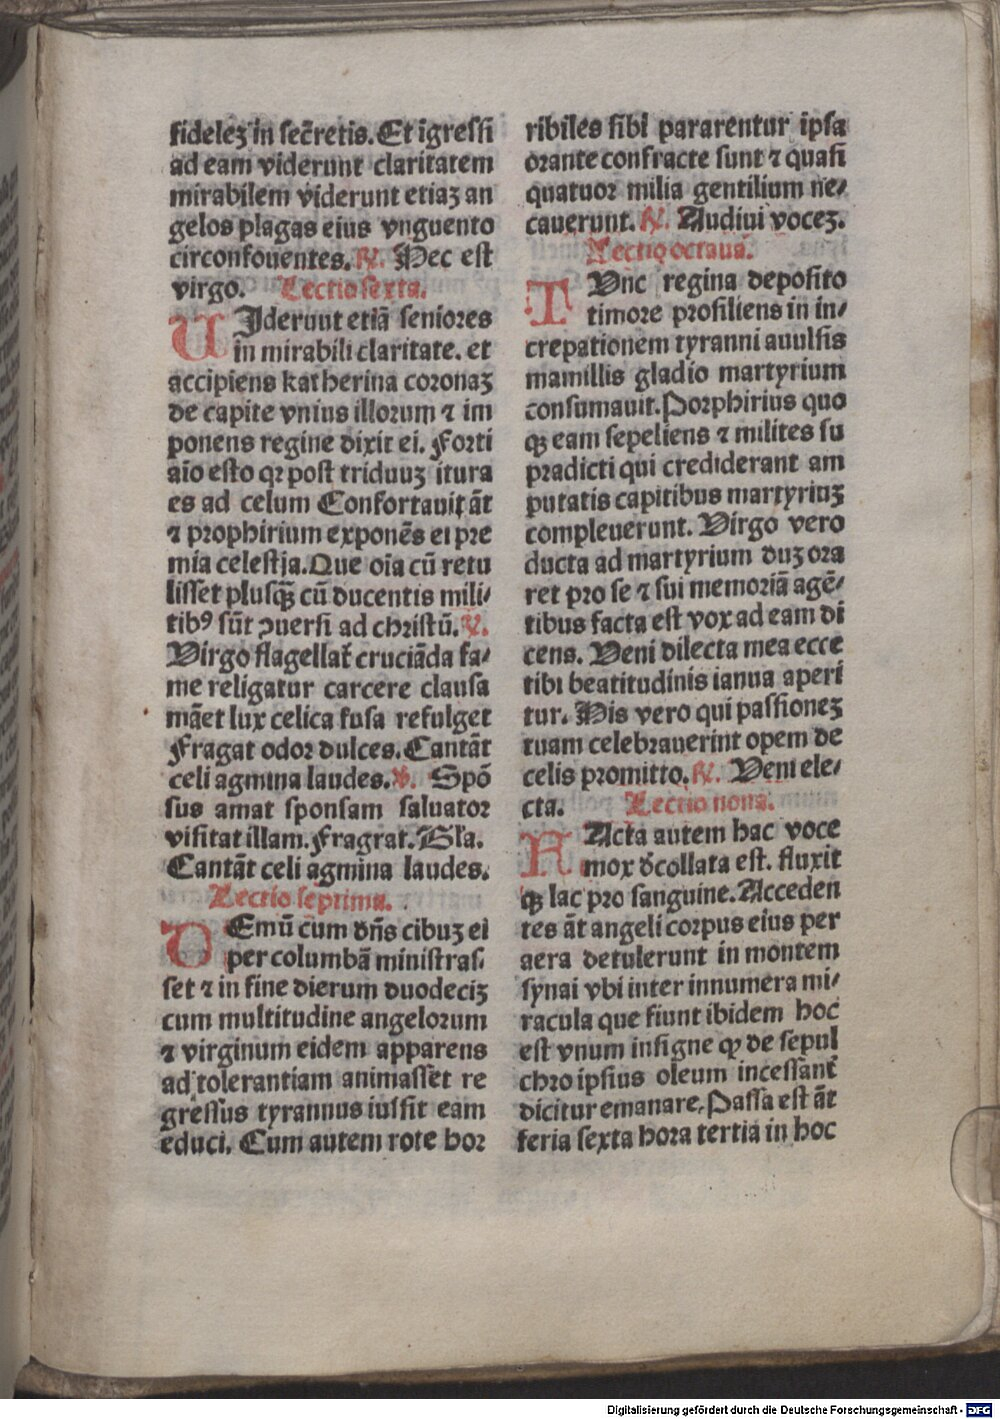 fideleʒ in sec̄retis. Et igressi
ad eam viderunt claritatem
mirabilem viderunt etiaʒ an
gelos plagas eius vnguento
circonfouentes. ℟. Hec est
virgo. Lectio sexta.
UIderunt etiā seniores
in mirabili claritate. et
accipiens katherina coronaʒ
de capite vnius illorum ⁊ im
ponens regine dixit ei. Forti
aīo esto qꝛ post triduuʒ itura
es ad celum Confortauit āt
⁊ prophirium exponēs ei pre
mia celestia. Que oīa cū retu
lisset plusqȝ̄ cū ducentis mili⸗
tibꝰ sūt ꝯuersi ad christū. ℟.
Virgo flagellat̄ cruciāda fa⸗
me religatur carcere clausa
māet lux celica fusa refulget
Fragat odor dulces. Cantāt
celi agmina laudes. ℣. Spō
sus amat sponsam saluator
visitat illam. Fragrat. Gl̄a.
Cantāt celi agmina laudes.
Lectio septima.
DEmū cum dn̄s cibuʒ ei
per columbā ministras⸗
set ⁊ in fine dierum duodeciʒ
cum multitudine angelorum
⁊ virginum eidem apparens
ad tolerantiam animasset re
gressus tyrannus iussit eam
educi. Cum autem rote hor
ribiles sibi pararentur ipsa
orante confracte sunt ⁊ quasi
quatuor milia gentilium ne⸗
cauerunt. ℟. Audiui voceʒ.
Lectio octaua.
TUnc regina deposito
timore prosiliens in in⸗
crepationem tyranni auulsis
mamillis gladio martyrium
consumauit. Porphirius quo
qȝ eam sepeliens ⁊ milites su
pradicti qui crediderant am
putatis capitibus martyriuʒ
compleuerunt. Virgo vero
ducta ad martyrium duʒ ora
ret pro se ⁊ sui memoriā agē⸗
tibus facta est vox ad eam di
cens. Veni dilecta mea ecce
tibi beatitudinis ianua aperi
tur. His vero qui passioneʒ
tuam celebrauerint opem de
celis promitto. ℟. Veni ele⸗
cta. Lectio nona.
FActa autem hac voce
mox d̄collata est. fluxit
qȝ lac pro sanguine. Acceden
tes āt angeli corpus eius per
aera detulerunt in montem
synai vbi inter innumera mi⸗
racula que fiunt ibidem hoc
est vnum insigne ꝙ de sepul
chro ipsius oleum incessant̄
dicitur emanare. Passa est āt
feria sexta hora tertia in hoc
Digitalisierung gefördert durch die Deutsche Forschungsgemeinschaft - DFG